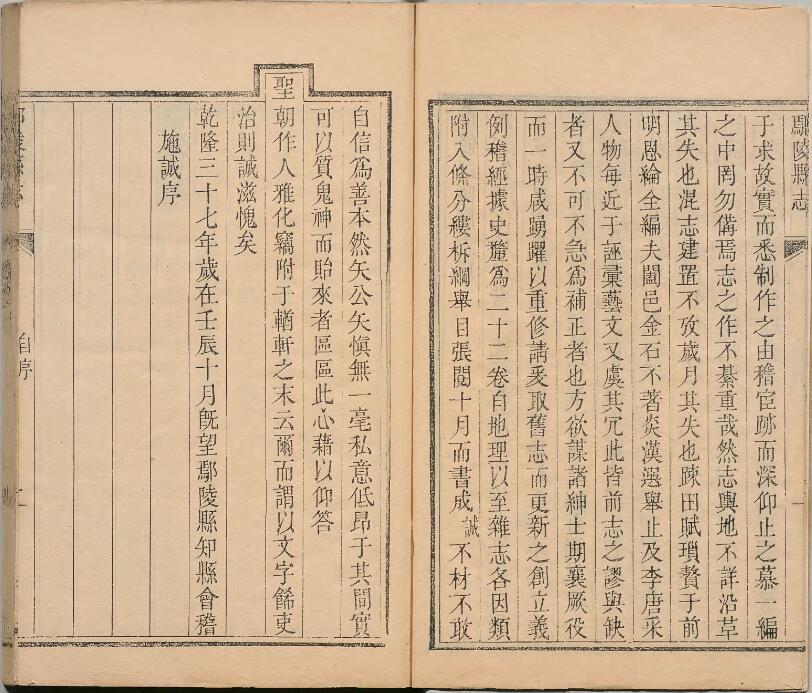 鄢陵縣志
于求故實而悉制作之由稽宦跡而深仰止之慕一編
之中罔勿備焉志之作不綦重哉然志輿地不詳沿革
其失也混志建置不攷歲月其失也踈田賦瑣贅于前
明恩綸全編夫闔邑金石不著炎漢選舉止及李唐采
人物每近于誣彚藝文又虞其冗此皆前志之謬與缺
者又不可不急為補正者也方欲謀諸紳士期襄厥役
而一時咸踴躍以重修請爰取舊志而更新之創立義
例稽經據史釐爲二十二卷自地理以至雜志各因類
附入條分縷柝綱舉目張閱十月而書成誠不材不敢
自信爲善本然矢公矢愼無一毫私意低昂于其間實
可以質鬼神而貽來者區區此心藉以仰答
聖朝作人雅化竊附于輶軒之末云爾而謂以文字餙吏
治則誠滋愧矣
乾隆三十七年歲在壬辰十月旣望鄢陵縣知縣會稽
施誠序
自序